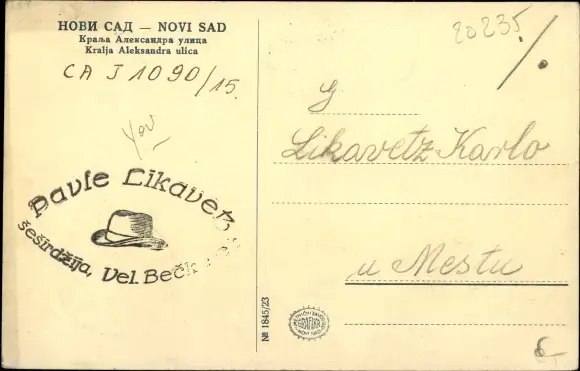 НОВИ САД — NOVI SAD
Краља Александра улица
Kralja Aleksandra ulica
CA J 1090/15.
20235
Pavle Likavetz
šeširdžija, Vel. Bečk
G
Likavetz Karlo
u Mestu
№ 1845/23
GRAFIKA
6-